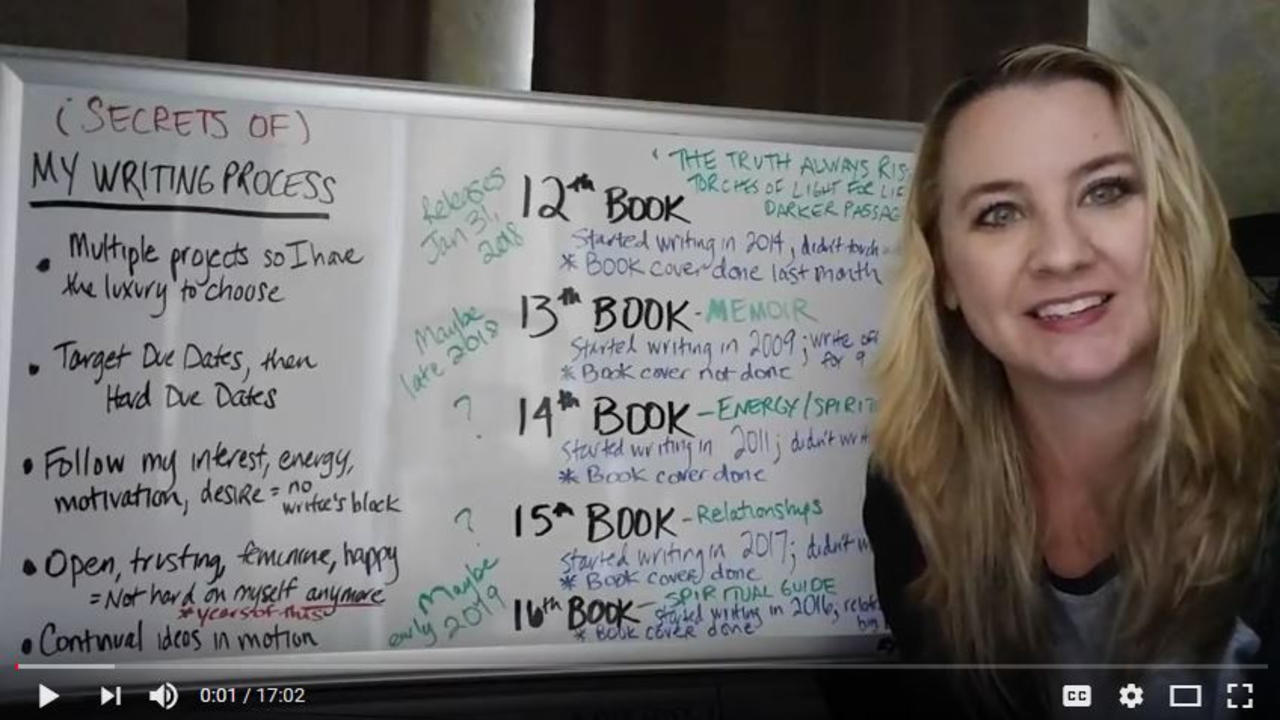 (SECRETS OF)
MY WRITING PROCESS
• Multiple projects so I have
the luxury to choose
• Target Due Dates, then
Hard Due Dates
• Follow my interest, energy,
motivation, desire = no
writer's block
• Open, trusting, feminine, happy
= Not hard on myself anymore
*years of this
• Continual ideas in motion
THE TRUTH ALWAYS RIS
TORCHES OF LIGHT FOR LIF
DARKER PASSAG
Releases
Jan 31,
2018
12th BOOK
Started writing in 2014, didn't touch
* BOOK cover done last month
Maybe
late 2018
13th BOOK - MEMOIR
Started writing in 2009; write off
for 9
* Book cover not done
? 14th BOOK - ENERGY/SPIRIT
Started writing in 2011; didn't writ
* Book cover done
? 15th BOOK - Relationships
started writing in 2017; didn't w
* Book cover done
Maybe
early 2019
16th BOOK - SPIRITUAL GUIDE
started writing in 2016, relat
big
* Book cover done
0:01 / 17:02
CC